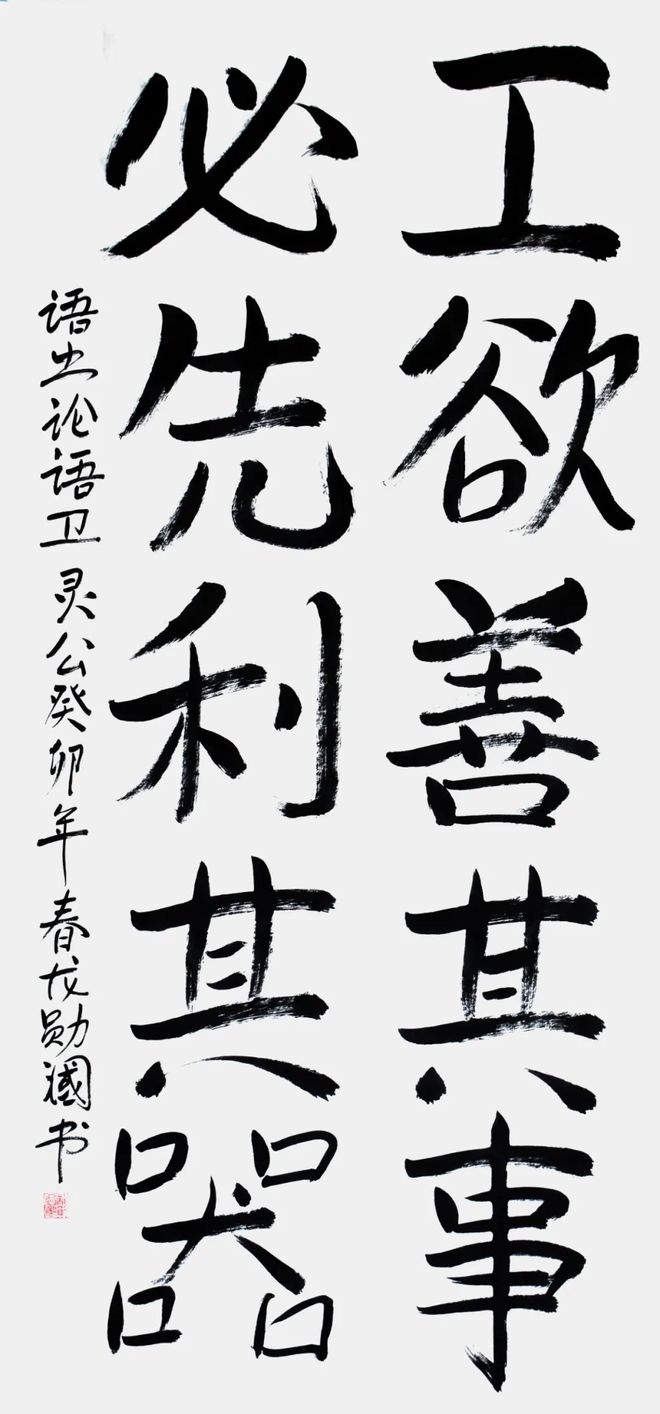 工欲善其事
必先利其器
语出论语卫灵公癸卯年春龙勋国书